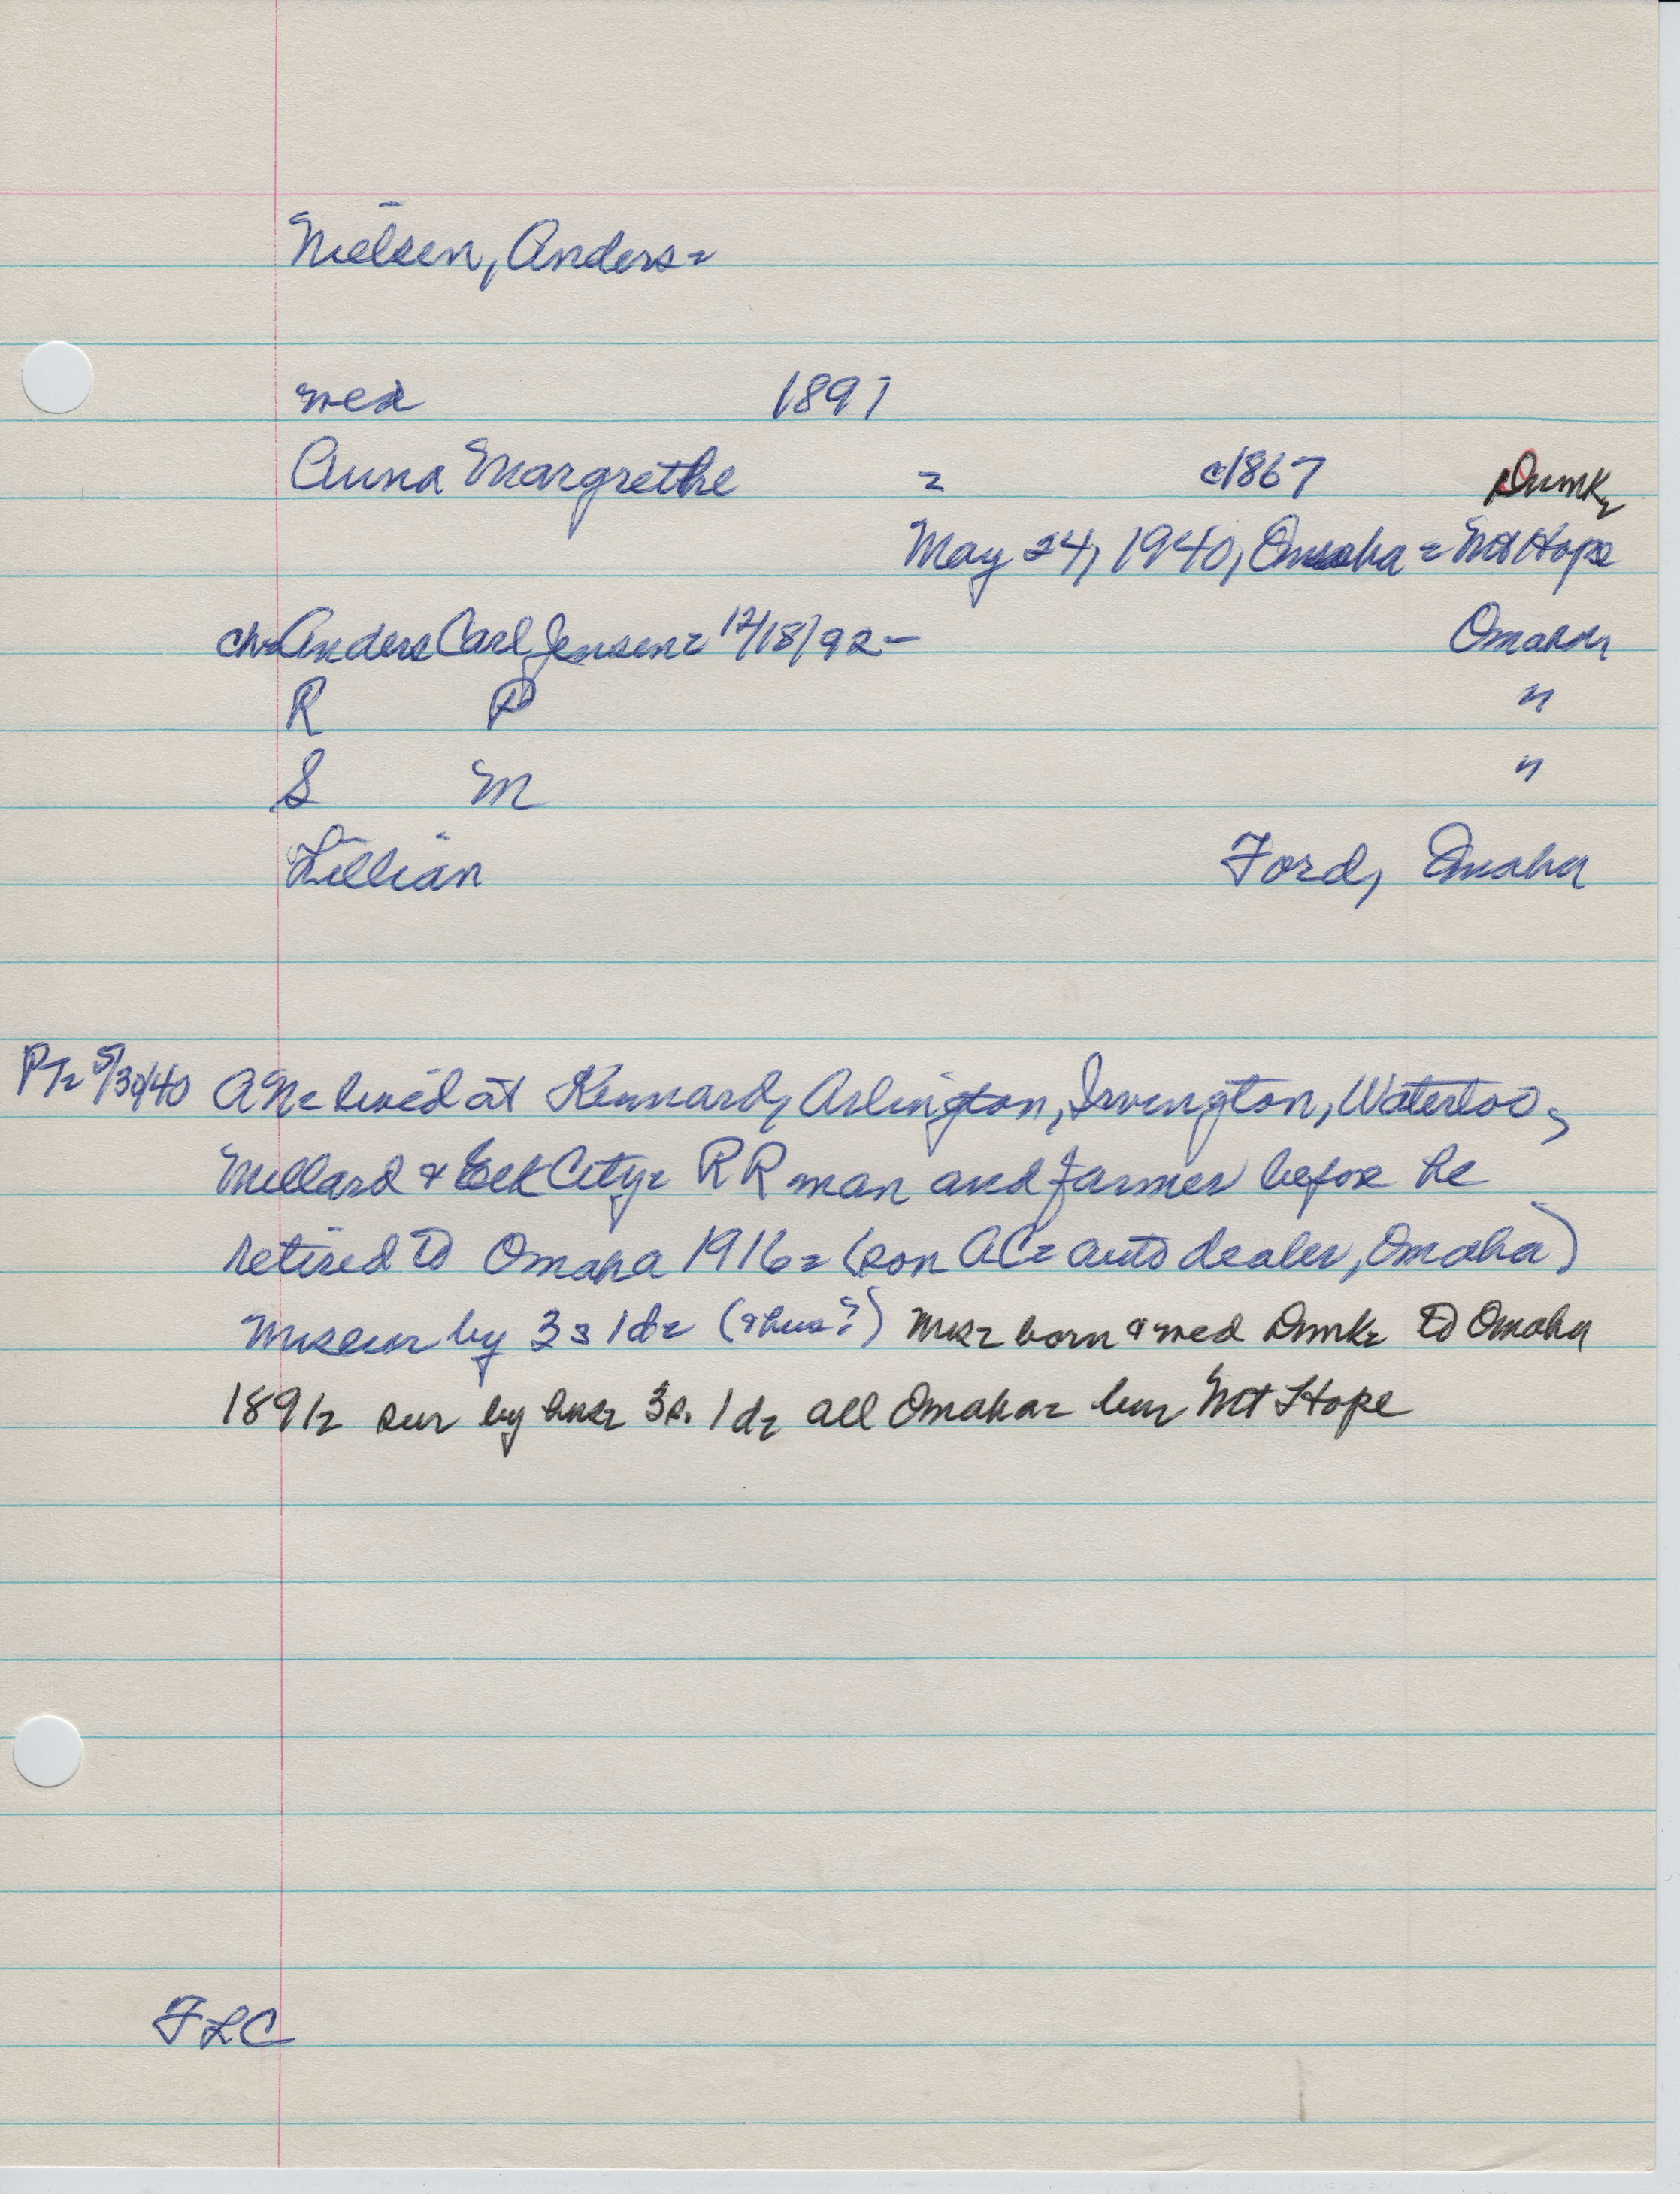 Nielsen, Anders=
med 1891
Anna Margrethe = c1867 Dnmk=
May 24, 1940, Omaha = Mt Hope
ch= Anders Carl Jensen= 12/18/92- Omaha
R P "
S M "
Lillian Ford, Omaha
PT= 5/30/40 AN= lived at Kennard, Arlington, Irvington, Waterloo,
Millard & Elk City= RR man and farmer before he
retired to Omaha 1916= (son AC= auto dealer, Omaha)
Mrs sur by 3 s 1 d= (& hus?) Mrs= born & med Dnmk= to Omaha
1891= sur by hus= 3 s. 1 d= all Omaha= bur Mt Hope
FLC